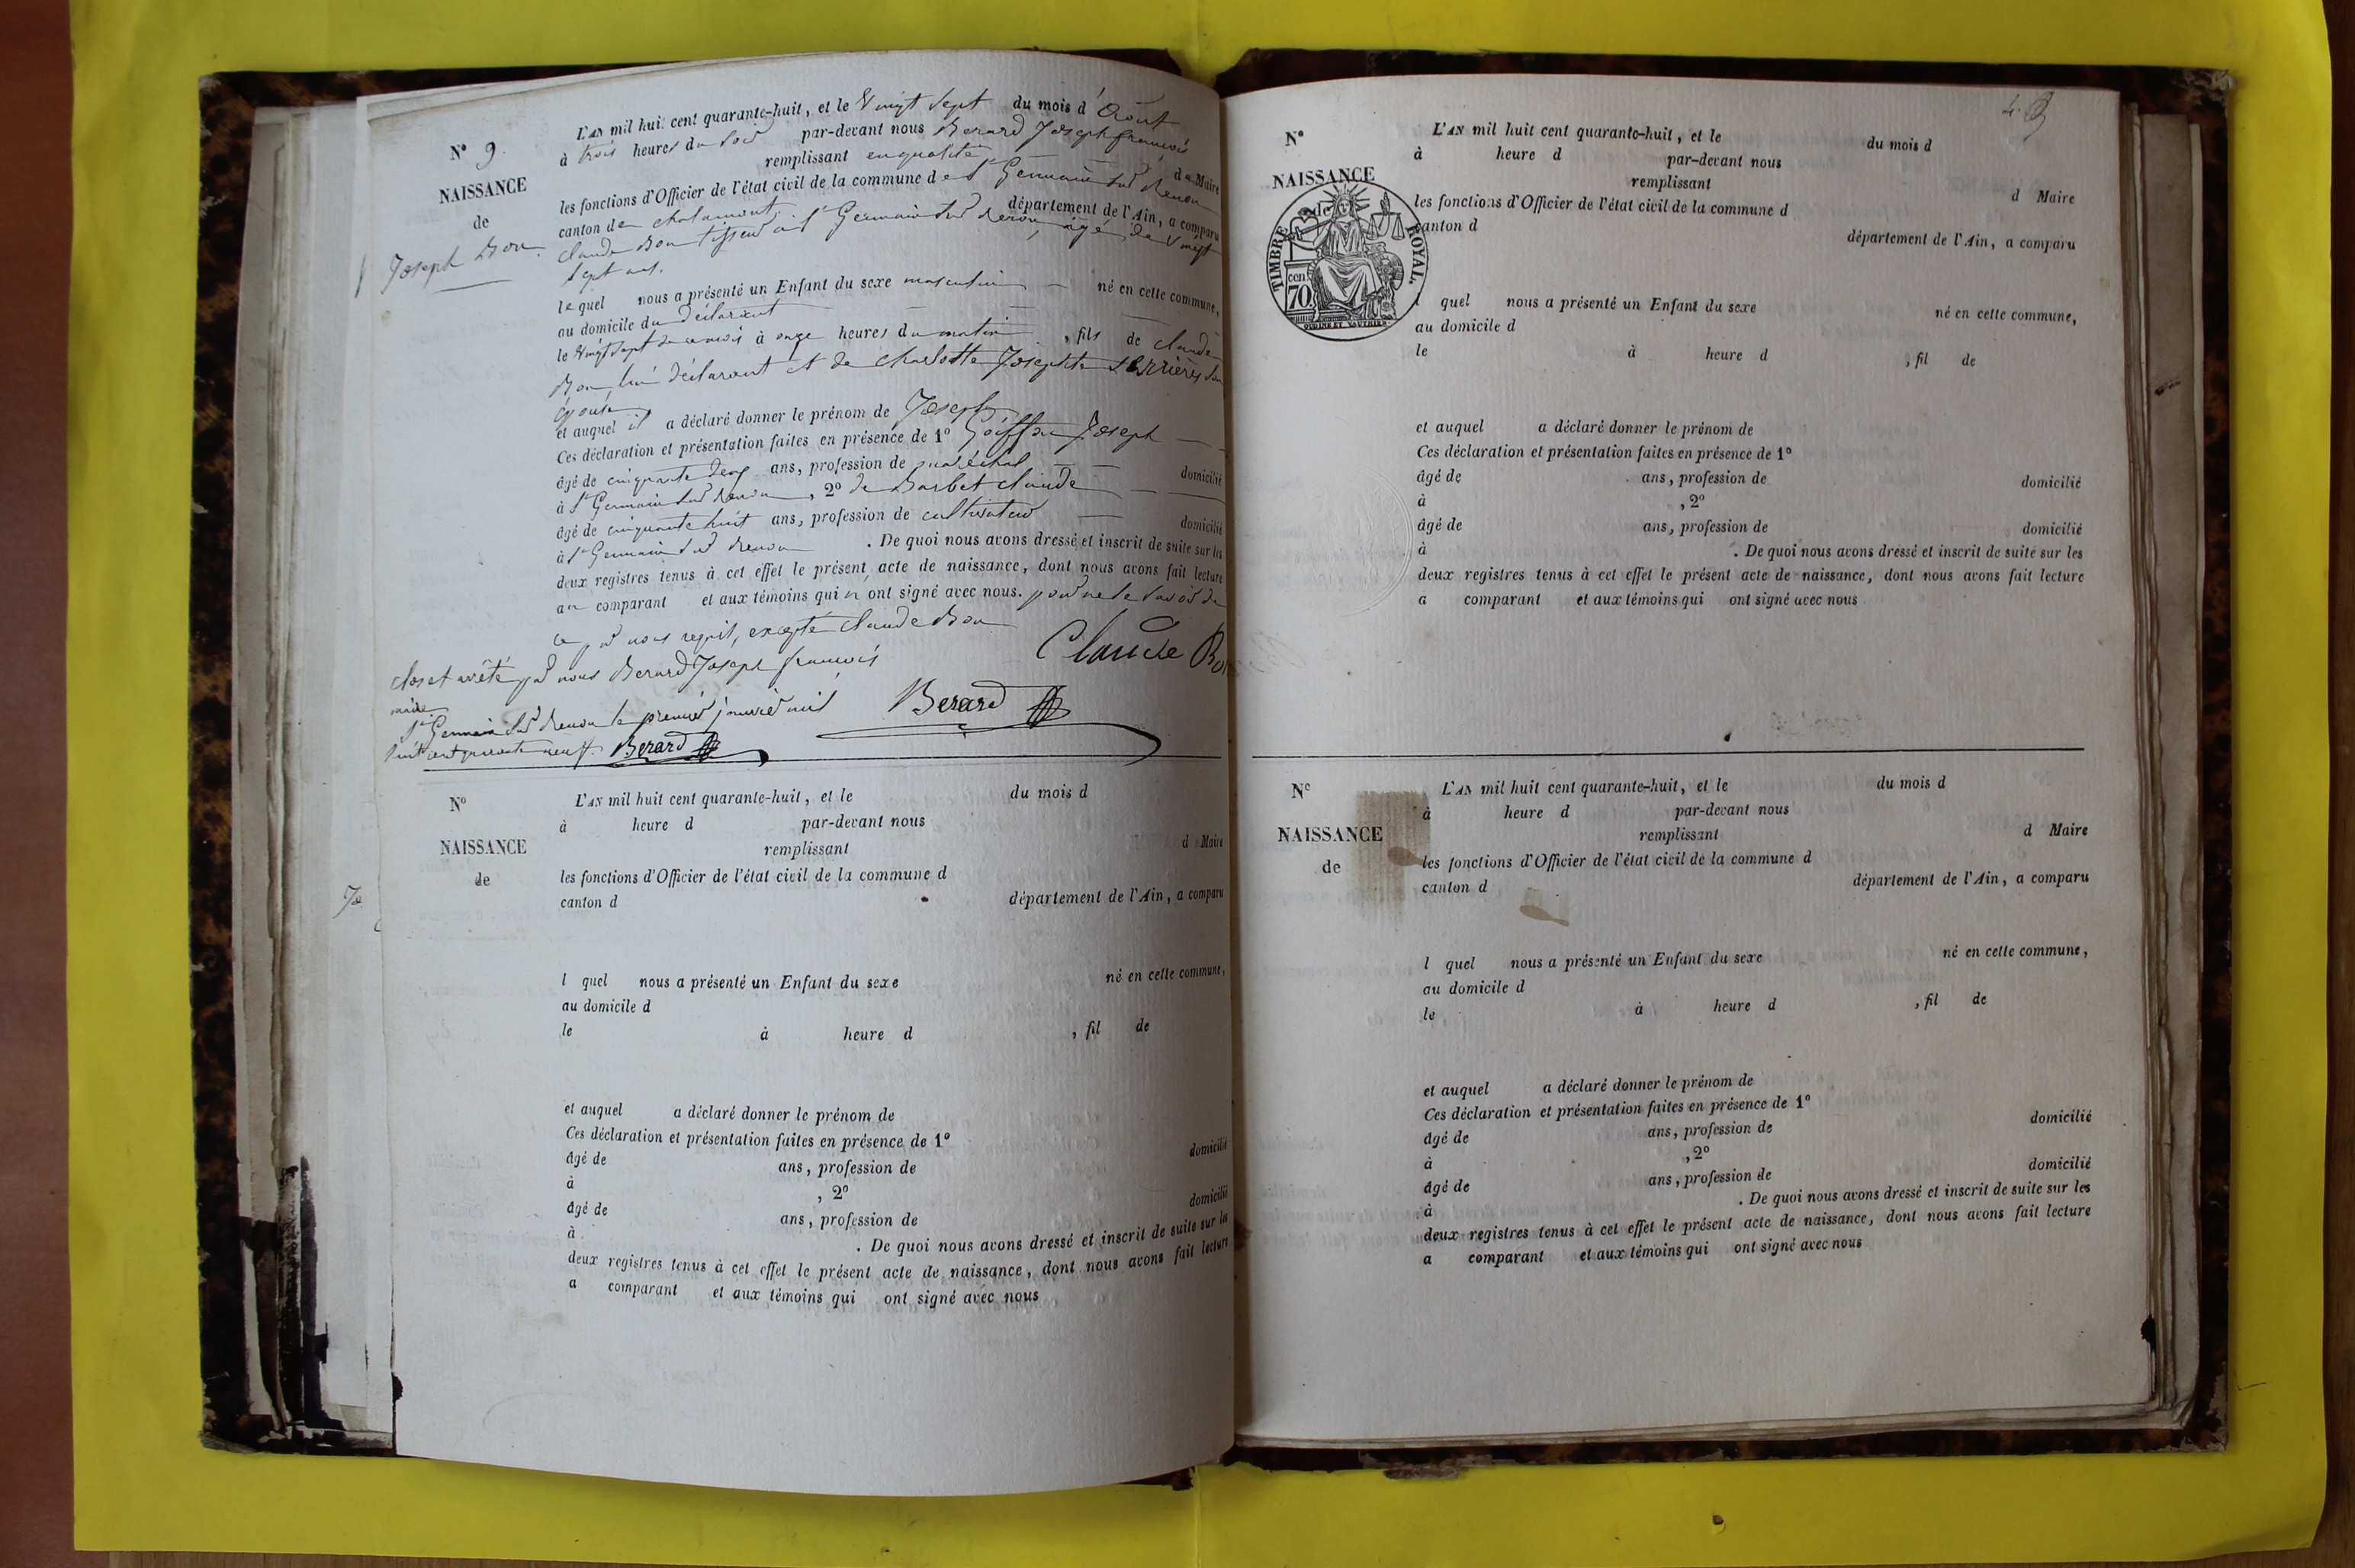 N° 9.
NAISSANCE
de
Joseph Bon.
L'AN mil huit cent quarante-huit, et le Vingt Sept du mois d'Août
à trois heures du soir par-devant nous Berard Joseph françois
remplissant en qualité de Maire
les fonctions d'Officier de l'état civil de la commune de St Germain sur Renon
canton de chalamont département de l'Ain, a comparu
Claude Bon tisseur à St Germain sur Renon, âgé de Vingt
Sept ans.
lequel nous a présenté un Enfant du sexe masculin né en cette commune,
au domicile du déclarant
le Vingt Sept du mois à onze heures du matin, fils de claude
Bon lui déclarant et de charlotte Josephte sa
épouse
et auquel il a déclaré donner le prénom de Joseph
Ces déclaration et présentation faites en présence de 1° Goiffon Joseph
âgé de cinquante deux ans, profession de maréchal domicilié
à St Germain sur Renon, 2° de Barbet claude
âgé de cinquante huit ans, profession de cultivateur domicilié
à St Germain sur Renon. De quoi nous avons dressé et inscrit de suite sur les
deux registres tenus à cet effet le présent acte de naissance, dont nous avons fait lecture
au comparant et aux témoins qui n ont signé avec nous. pour ne le savoir de
ce par nous requis, excepté claude Bon
Claude Bon
clos et arrêté par nous Berard Joseph françois
maire
St Germain sur Renon le premier janvier mil
huit cent quarante neuf. Berard
Berard
N°
NAISSANCE
de
L'AN mil huit cent quarante-huit, et le du mois d
à heure d par-devant nous
remplissant d Maire
les fonctions d'Officier de l'état civil de la commune d
canton d département de l'Ain, a comparu
l quel nous a présenté un Enfant du sexe né en cette commune,
au domicile d
le à heure d , fil de
et auquel a déclaré donner le prénom de
Ces déclaration et présentation faites en présence de 1°
âgé de ans, profession de domicilié
à , 2°
âgé de ans, profession de domicilié
à . De quoi nous avons dressé et inscrit de suite sur les
deux registres tenus à cet effet le présent acte de naissance, dont nous avons fait lecture
a comparant et aux témoins qui ont signé avec nous
N°
NAISSANCE
de
TIMBRE ROYAL.
cen
70.
OUDINE ET VAUTHIER
L'AN mil huit cent quarante-huit, et le du mois d
à heure d par-devant nous
remplissant d Maire
les fonctions d'Officier de l'état civil de la commune d
canton d département de l'Ain, a comparu
l quel nous a présenté un Enfant du sexe né en cette commune,
au domicile d
le à heure d , fil de
et auquel a déclaré donner le prénom de
Ces déclaration et présentation faites en présence de 1°
âgé de ans, profession de domicilié
à , 2°
âgé de ans, profession de domicilié
à . De quoi nous avons dressé et inscrit de suite sur les
deux registres tenus à cet effet le présent acte de naissance, dont nous avons fait lecture
a comparant et aux témoins qui ont signé avec nous
N°
NAISSANCE
de
L'AN mil huit cent quarante-huit, et le du mois d
à heure d par-devant nous
remplissant d Maire
les fonctions d'Officier de l'état civil de la commune d
canton d département de l'Ain, a comparu
l quel nous a présenté un Enfant du sexe né en cette commune,
au domicile d
le à heure d , fil de
et auquel a déclaré donner le prénom de
Ces déclaration et présentation faites en présence de 1°
âgé de ans, profession de domicilié
à , 2°
âgé de ans, profession de domicilié
à . De quoi nous avons dressé et inscrit de suite sur les
deux registres tenus à cet effet le présent acte de naissance, dont nous avons fait lecture
a comparant et aux témoins qui ont signé avec nous